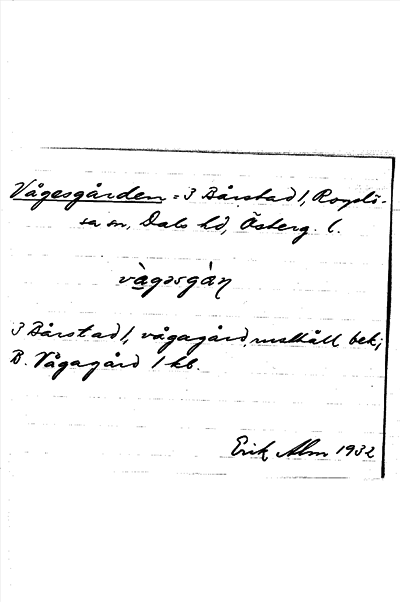 Vågesgården = 3 Bårstad 1, Rogslö-
sa sn, Dals hd, Österg. l.
vàgəsgàn
3 Bårstad 1, vågagård, mskåll bek;
B. Vågagård 1 kb.
Erik Alm 1932